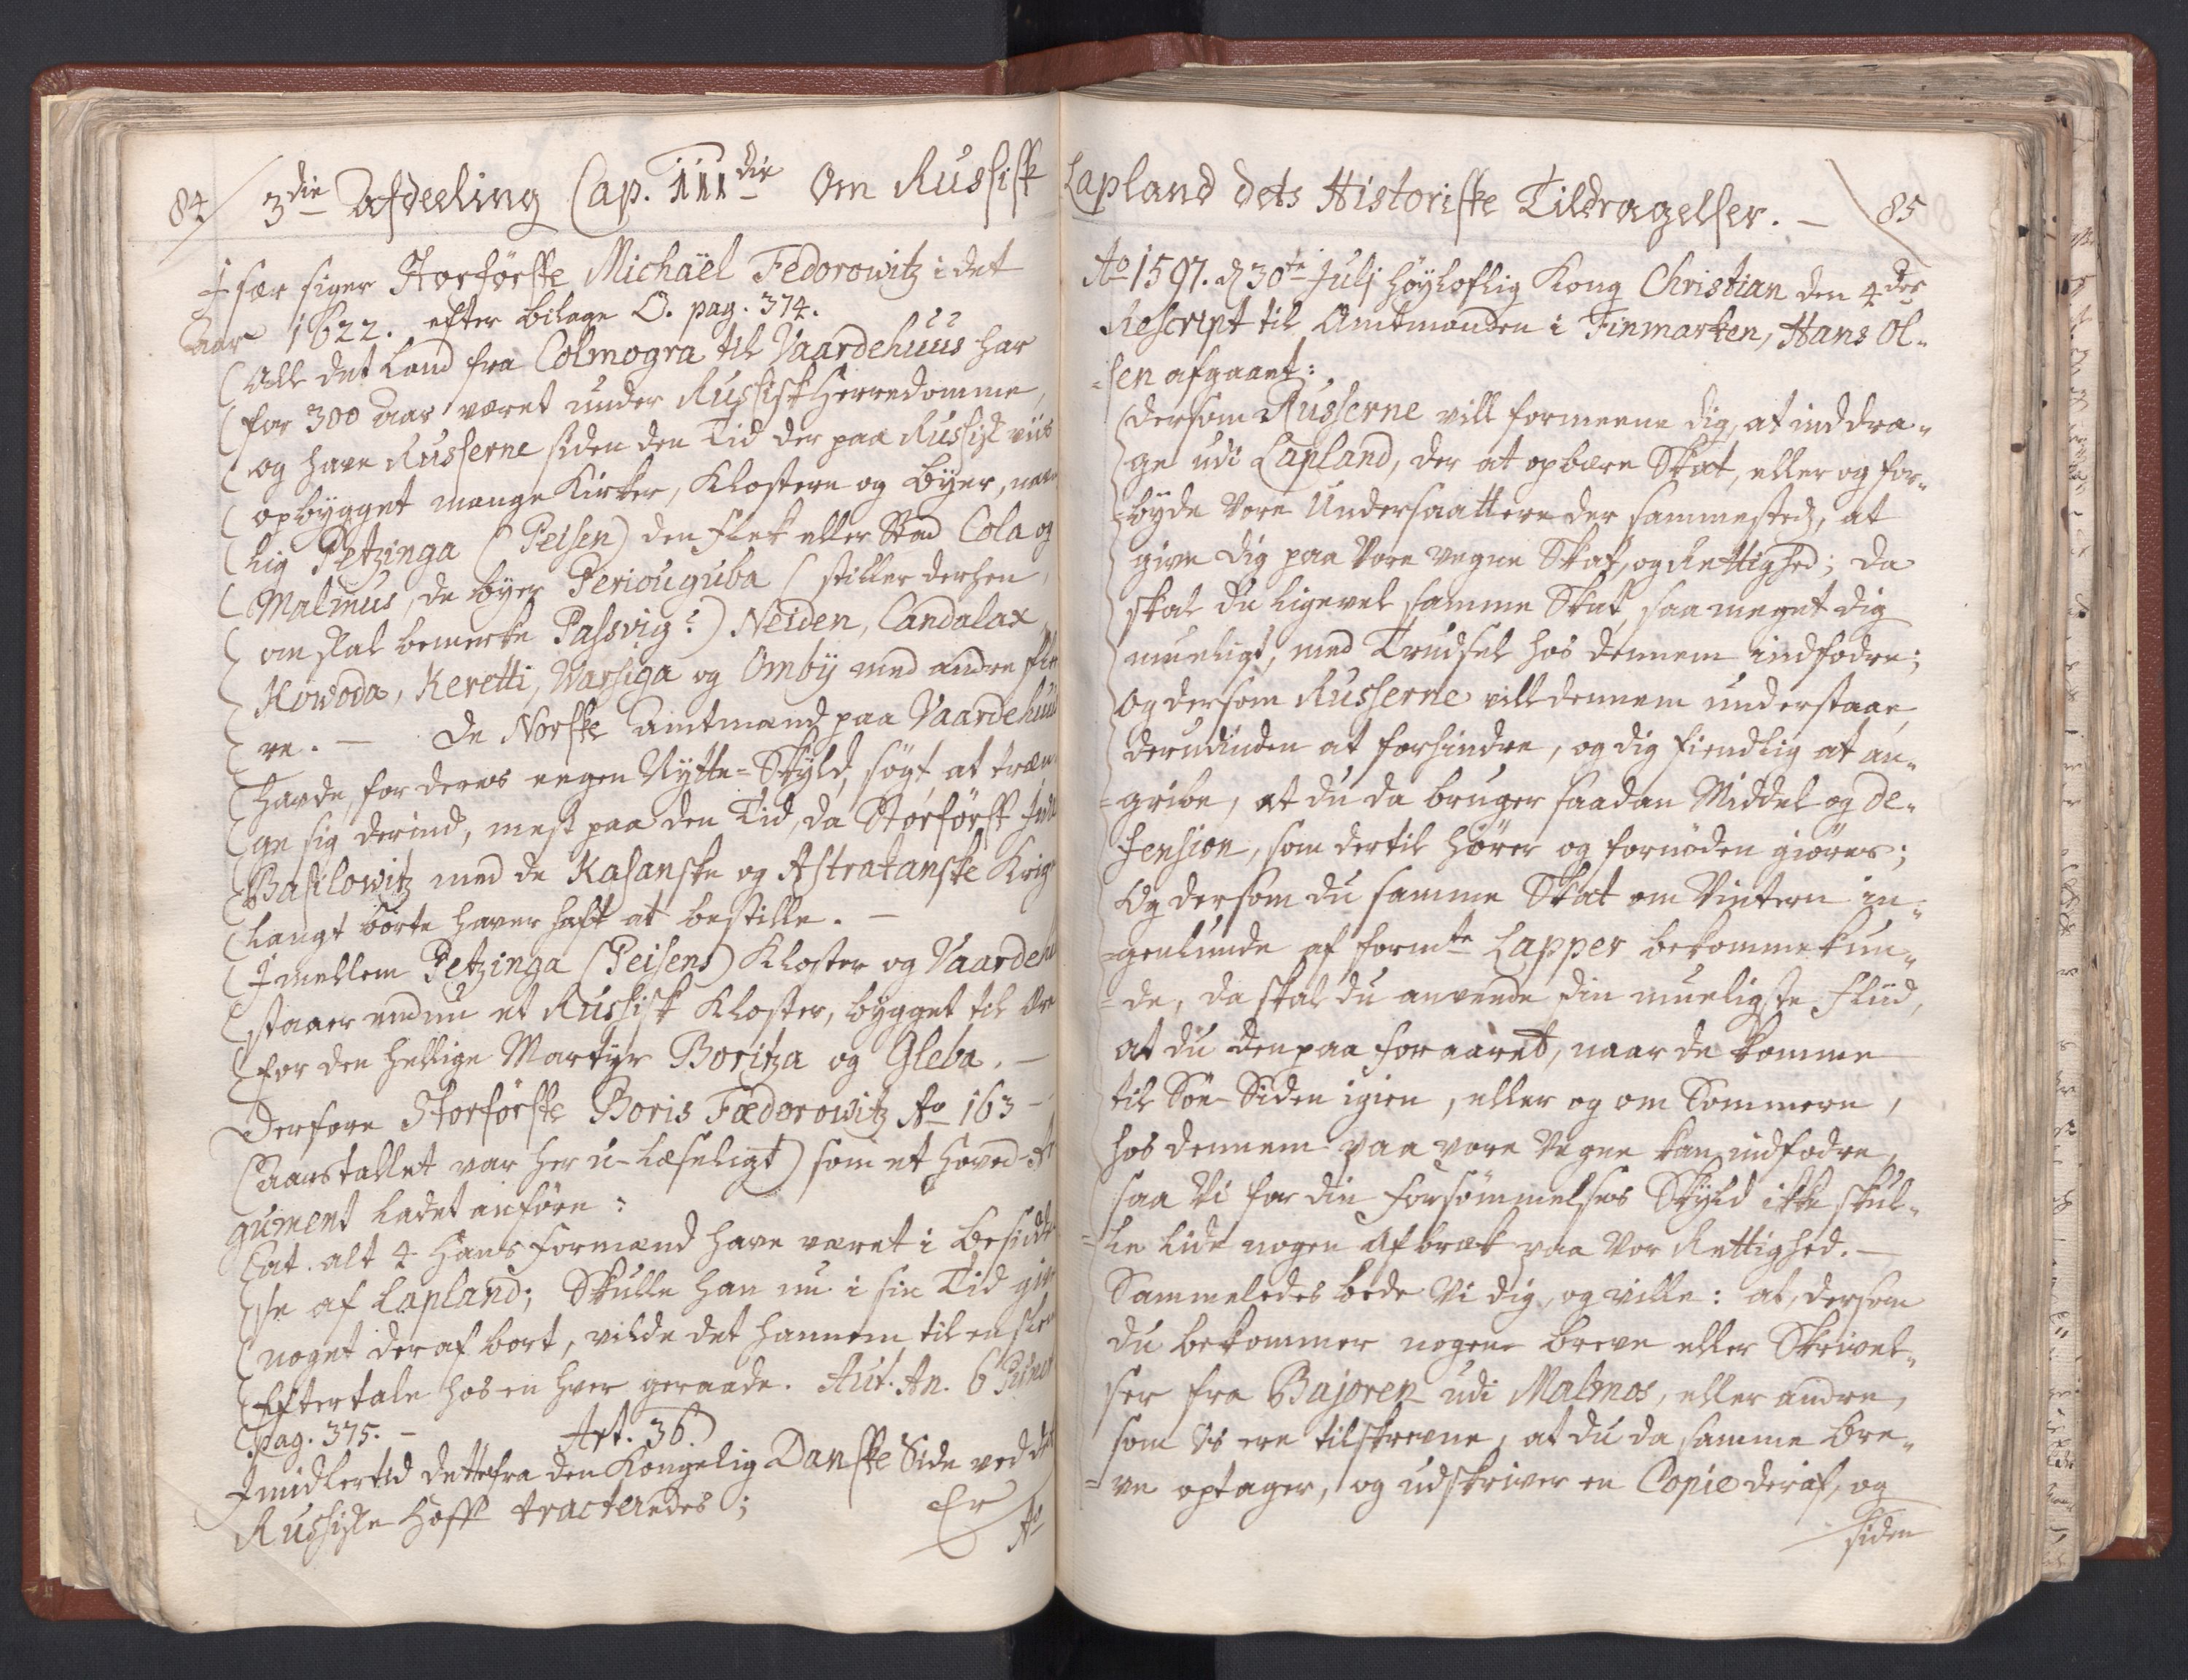 84 3die Afdeeling Cap. IIIdie Om Russisk
I sær siger Storförste Michaël Fedorowitz i det
Aar 1622. efter bilage O. pag. 374.
Alle det Land fra Colmogra til Vaardehuus har
for 300 Aar været under Russisk Herredomme,
og have Russerne siden den Tid der paa Russisk viis
opbÿgget mange Kirker, Klostere og Bÿer, nem
lig Petzinga (Peisen) den Flek eller Stad Cola og
Malmus, de bÿer Periouguba (stiller derhen,
om skal bemerke Passvig?) Neiden, Candalax
Kowoda, Keretti, Warsiga og Ombÿ med andre fle
re. — De Norske Amtmænd paa Vaardehuus
havde, for deres eegen Nÿtte-Skÿld, søgt at træn
ge sig derind, mest paa den Tid, da Storförst
Basilowitz med de Kasanske og Astrakanske Krig
langt borte haver haft at bestille. —
Imellem Petzinga (Peisens) Kloster og Vaardeh
staaer endnu et Russisk Kloster, bÿgget til Ære
for den hellige Martÿr Boritza og Gleba. —
Derfore Storförste Boris Fædorowitz Ao 163—
(Aarstallet var her u-læseligt) som et Hoved-Ar
gument ladet anföre:
at alt 4 hans Formænd have været i Besidde
se af Lapland; Skulle han nu i sin Tid give
noget deraf bort, vilde det hannem til en slem
Eftertale hos en hver geraade. Aut. An. 6
pag. 375. — Art. 36.)
Imidlertid dette fra den Kongelig Danske Side ved det
Russiske Hoff tracteredes; Er
Ao
Lapland dets Historiske Tildragelser. — 85
Ao 1597. d 30te Julj höÿloflig Kong Christian den 4des
Rescript til Amtmanden i Finmarken, Hans Ol-
sen afgaaet:
dersom Russerne vill formeene dig, at inddra-
ge udi Lapland, der at opbære Skat, eller og for-
bÿde Vore Undersaattere der sammesteds, at
give dig paa Vore vegne Skat, og Rettighed; da
skal du ligevel samme Skat, saa meget dig
mueligt, med Trudsel hos dennem indfodre;
og dersom Russerne vill dennem understaae,
derudinden at forhindre, og dig fiendlig at an-
gribe, at du da bruger saadan Middel og De-
fension, som dertil hører og fornöden giöres;
Og dersom du samme Skat om Vintern in-
genlunde af formte Lapper bekomme kun-
de, da skal du anvende din mueligste Fliid,
at du den paa foraaret, naar de komme
til Söe-Siden igien, eller og om Sommern,
hos dennem paa vore Vegne kan indfodre,
saa Vi for din Forsömmelses Skÿld ikke skul-
le lide nogen Afbræk paa Vor Rettighed. —
Sammeledes bede Vi dig, og ville: at, dersom
du bekommer nogene breve eller Skrivel-
ser fra Bajoren udi Malmos, eller andre,
som Os ere tilskrevne, at du da samme bre-
ve optager, og udskriver en Copie deraf, og
siden